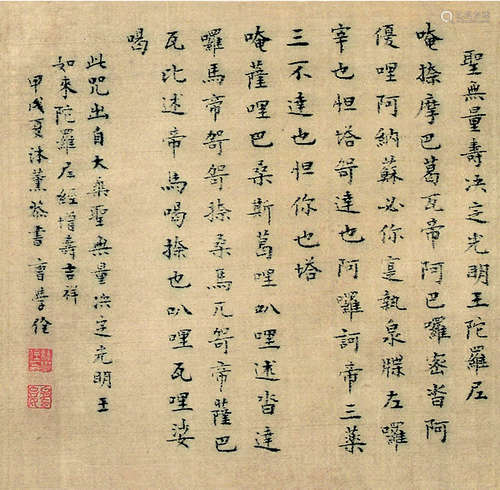 聖無量壽决定光明王陀羅尼
唵捺摩巴葛瓦帝阿巴囉密沓阿
優哩阿納蘇必你寔執泉牒左囉
宰也怛塔哿達也阿囉訶帝三藥
三不達也怛你也塔
唵薩哩巴桑斯葛哩叭哩述沓達
囉馬帝哿哿捺桑馬兀哿帝薩巴
瓦比述帝馬喝捺也叭哩瓦哩娑
喝
此咒出自大乘聖無量决定光明王
如來陀羅尼經增壽吉祥
甲戌夏沐薰敬書 曹學佺